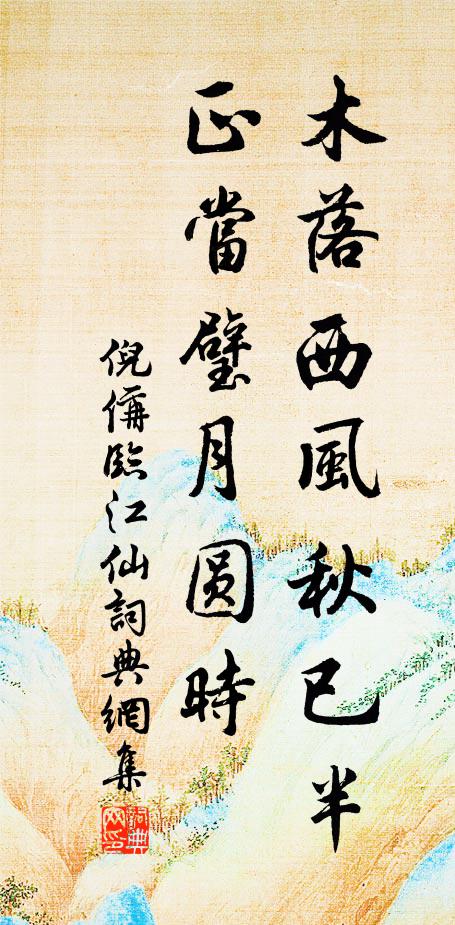 木落西風秋已半
正當璧月圓時
倪偁臨江仙詞典網集
詞典
网印